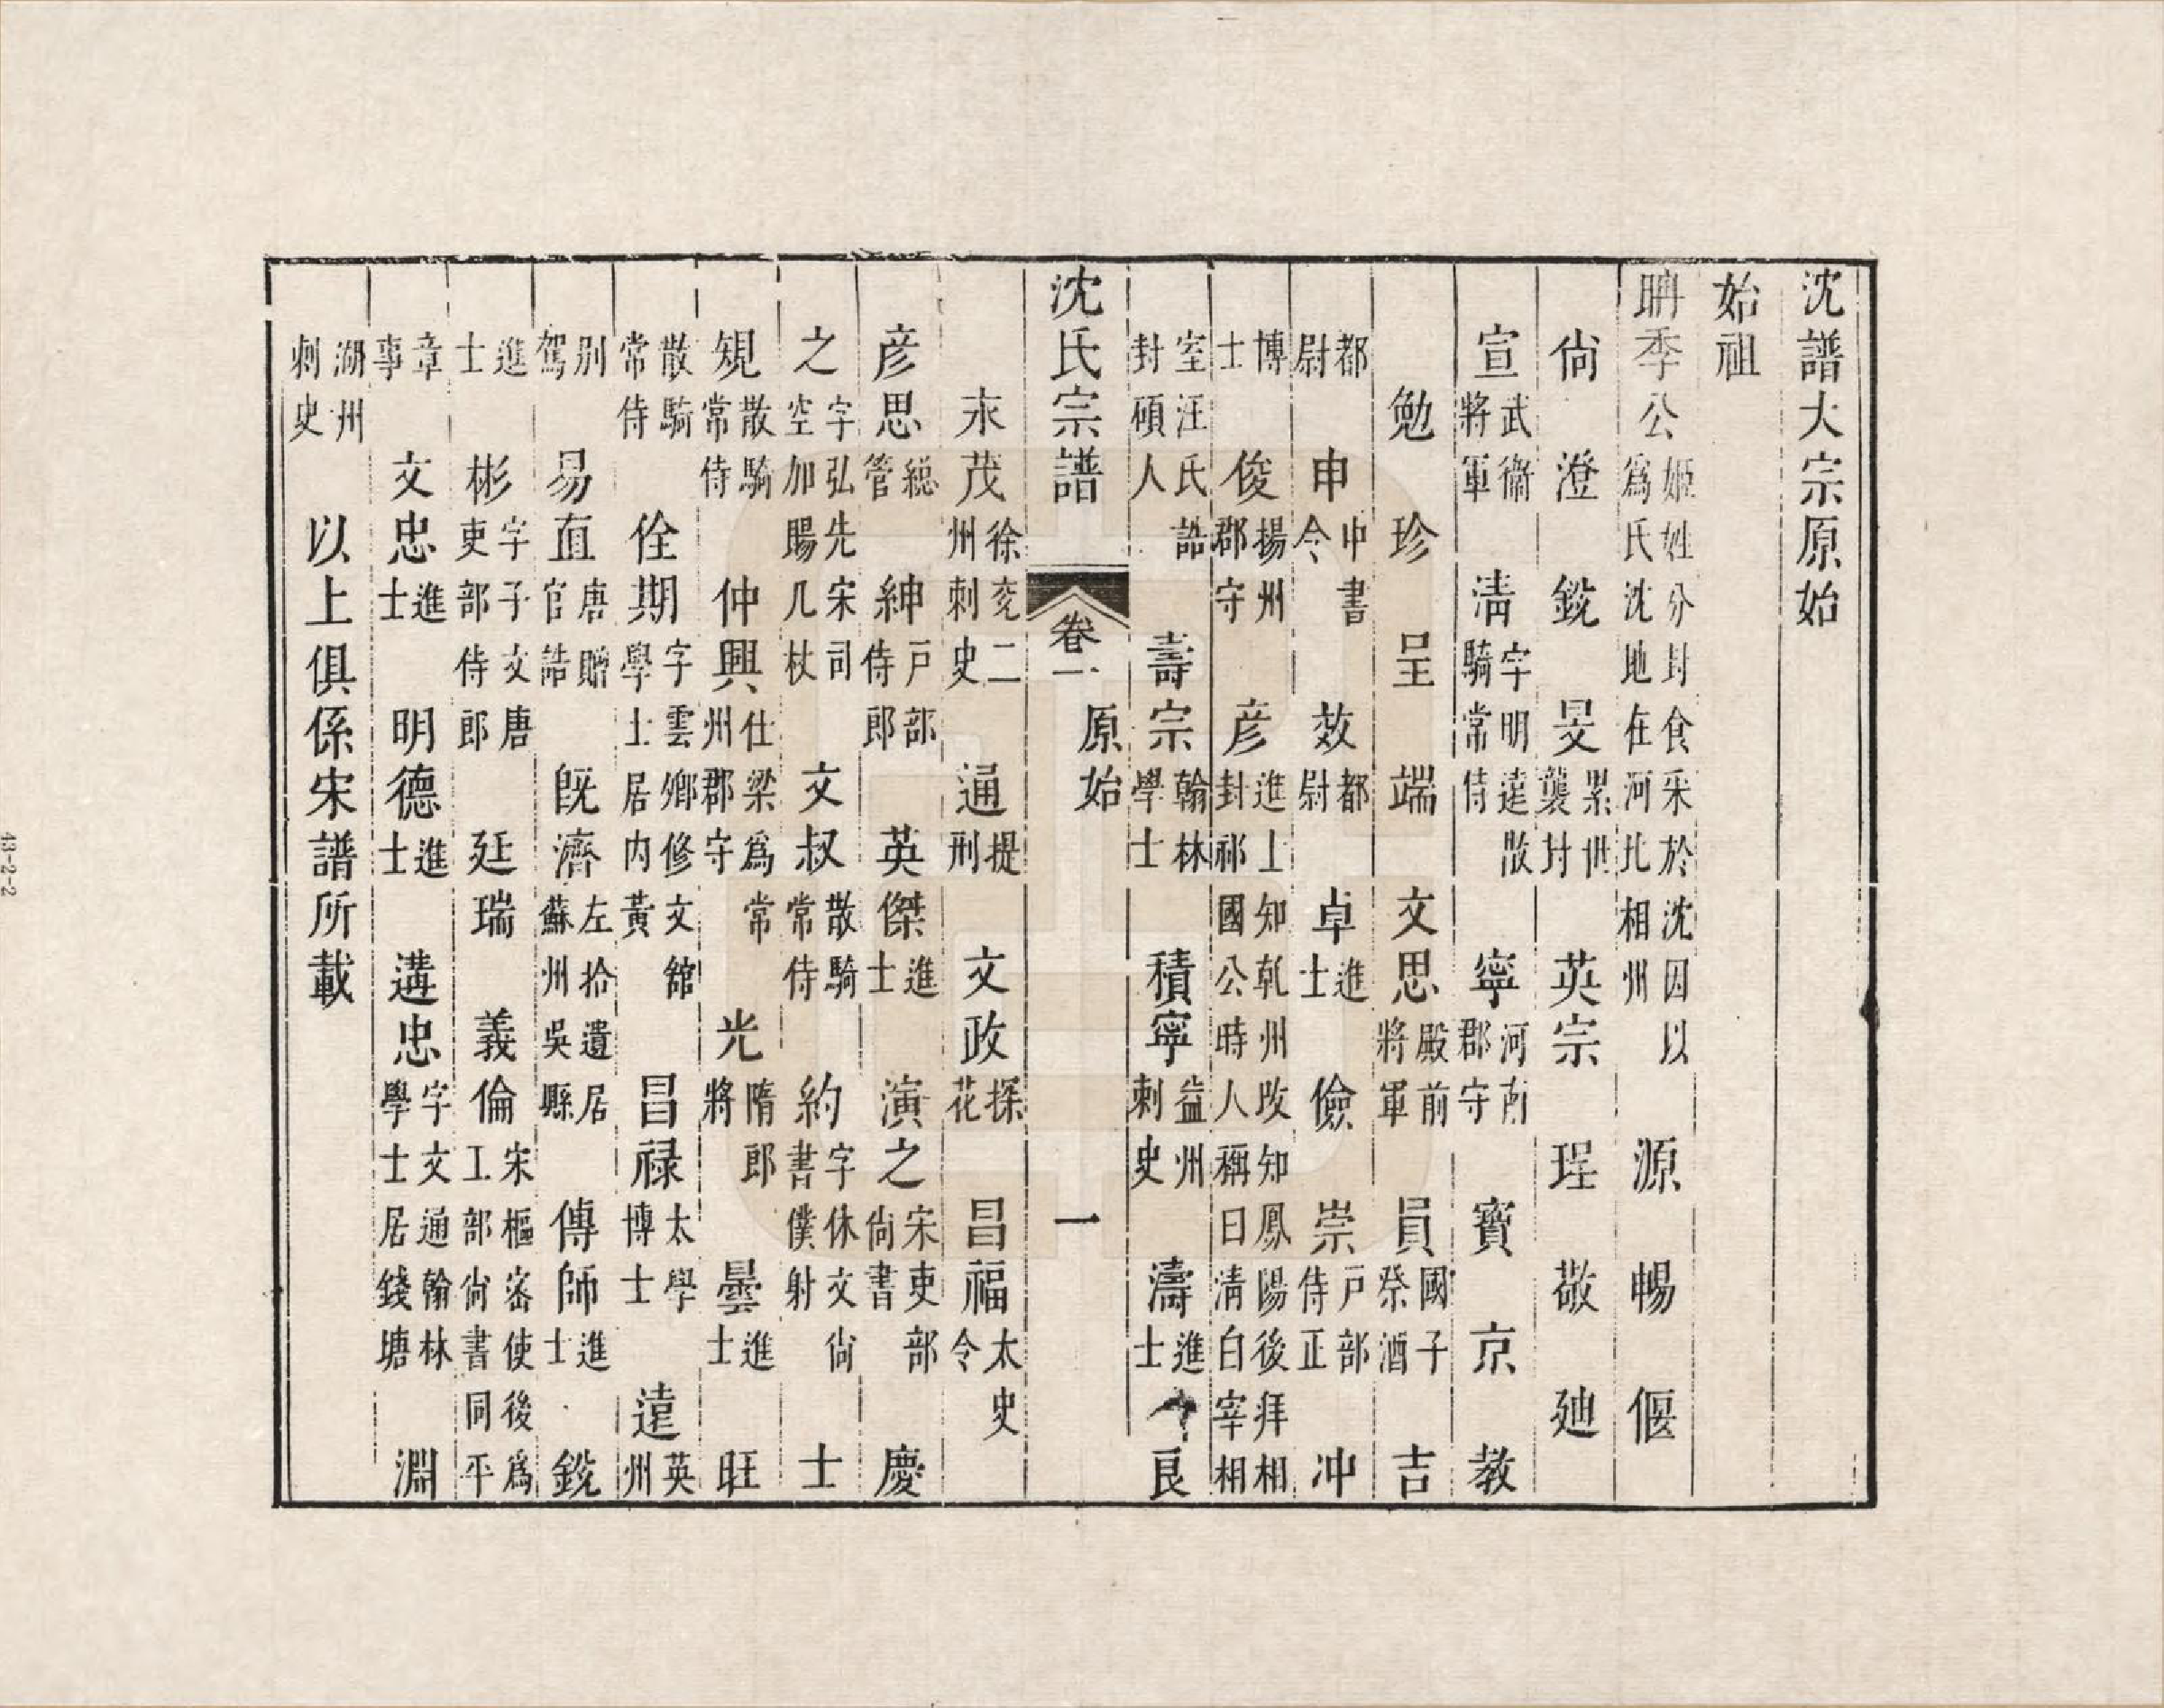 沈譜大宗原始
始祖
聃季公姬姓分封食采於沈因以爲氏沈地在河北相州 源 暢 偃
尙 澄 銳 旻累世襲封 英宗 珵 敬 廸
宣武衞將軍 淸字明達散騎常侍 寧河南郡守 寶 京 教
勉 珍 呈 端 文思殿前將軍 員國子祭酒 吉
都尉 申中書令 效都尉 卓進士 儉 崇戸部侍正 冲
博士 俊揚州郡守 彦進士知軋州攺知鳳陽後拜相封祁國公時人稱曰淸白宰相
室汪氏誥封碩人 壽宗翰林學士 積寧益州刺史 濤進士 良
沈氏宗譜 卷一 原始 一
永茂徐兗二州刺史 通提刑 文政探花 昌福太史令
彦思總管 紳戸部侍郎 英傑進士 演之宋吏部尙書 慶
之字弘先宋司空加賜几杖 文叔散騎常侍 約字休文尙書僕射 士
規散騎常侍 仲興仕梁爲常州郡守 光隋郎將 曇進士 旺
散騎常侍 佺期字雲鄉修文館學士居内黃 昌禄太學博士 達英州
别駕 易直唐贈官誥 旣濟左拾遺居蘇州吳縣 傳師進士 銳
進士 彬字子文唐吏部侍郎 延瑞 義倫宋樞宻使後爲工部尙書同平
章事 文忠進士 明德進士 遘忠字文通翰林學士居錢塘 淵
湖州刺史 以上俱係宋譜所載
43-2-2